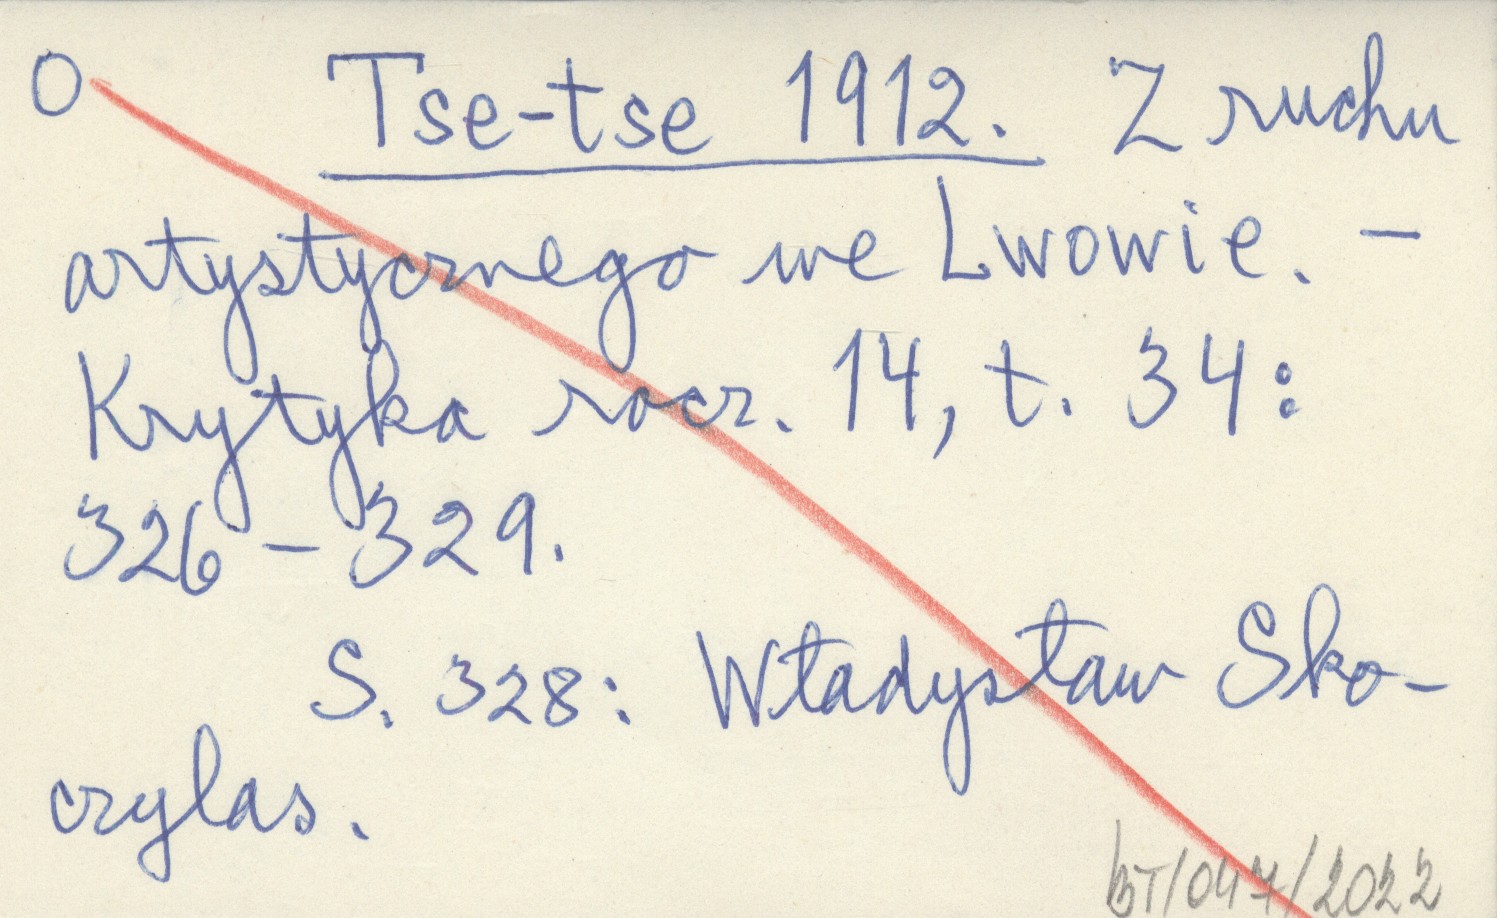 O Tse-tse 1912. Z ruchu
artystycznego we Lwowie. –
Krytyka rocz. 14, t. 34:
326 – 329.
S. 328: Władysław Sko-
czylas.
BT/047/2022